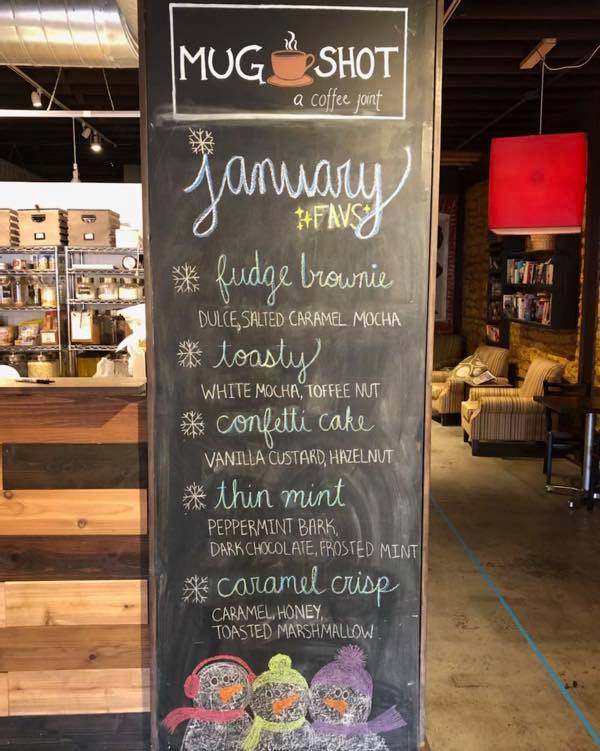 MUG SHOT
a coffee joint
january
FAVS
fudge brownie
DULCE, SALTED CARAMEL MOCHA
toasty
WHITE MOCHA, TOFFEE NUT
confetti cake
VANILLA CUSTARD, HAZELNUT
thin mint
PEPPERMINT BARK,
DARK CHOCOLATE, FROSTED MINT
caramel crisp
CARAMEL, HONEY,
TOASTED MARSHMALLOW